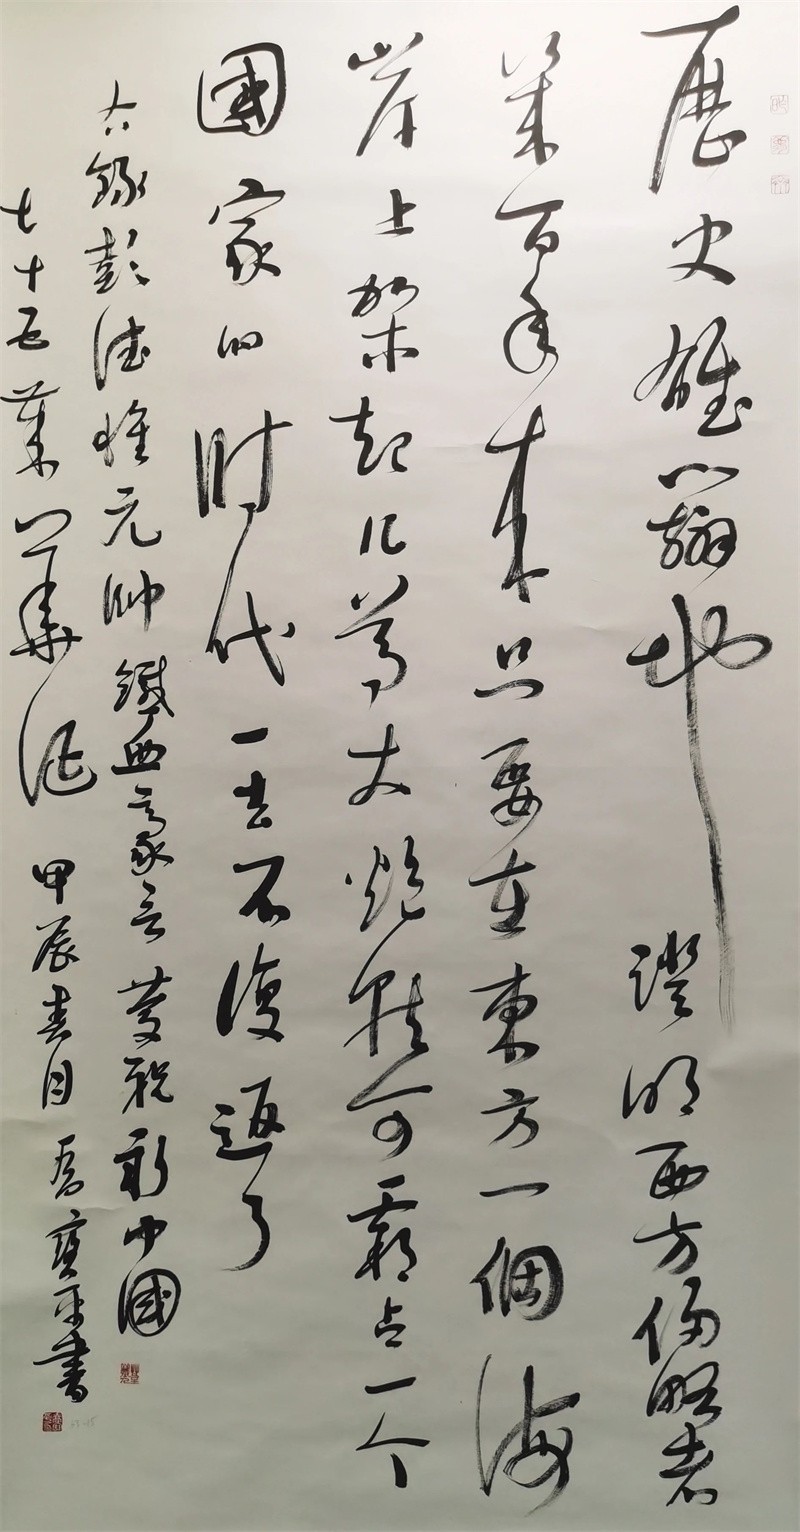 歷史雄辯地證明西方侵略者
幾百年来只要在東方一個海
岸上架起几尊大炮就可霸占一个
國家的时代一去不復返了
右錄彭德懷元帥鐵血豪言慶祝新中國
七十五華誕 甲辰春月 喬寶平書